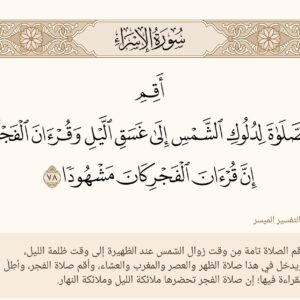 سُورَةُ الإِسْرَاءِ
أَقِمِ
صَّلَوٰةَ لِدُلُوكِ ٱلشَّمْسِ إِلَىٰ غَسَقِ ٱلَّيْلِ وَقُرْءَانَ ٱلْفَجْ
إِنَّ قُرْءَانَ ٱلْفَجْرِ كَانَ مَشْهُودًا ٧٨
التفسير الميسر
قم الصلاة تامة مِن وقت زوال الشمس عند الظهيرة إلى وقت ظلمة الليل،
يدخل في هذا صلاة الظهر والعصر والمغرب والعشاء، وأقم صلاة الفجر، وأطِلْ
قراءة فيها؛ إن صلاة الفجر تحضرها ملائكة الليل وملائكة النهار.